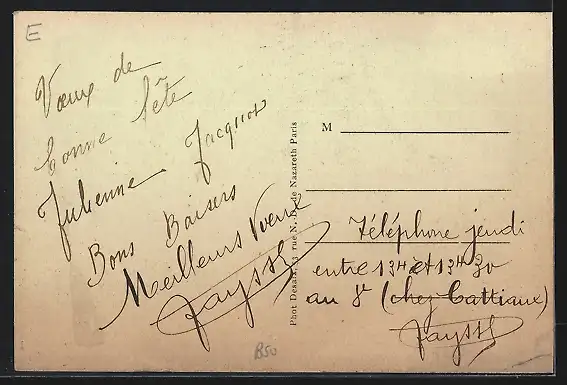 E
Vœux de
bonne fête
Julienne Jacquot
Bons Baisers
Meilleurs Vœux
Fayssl
B50
Phot Desaix, 13 rue N. D. de Nazareth Paris
M
Téléphone jeudi
entre 13H et 13H 30
au 8e (chez Cattiaux)
Fayssl